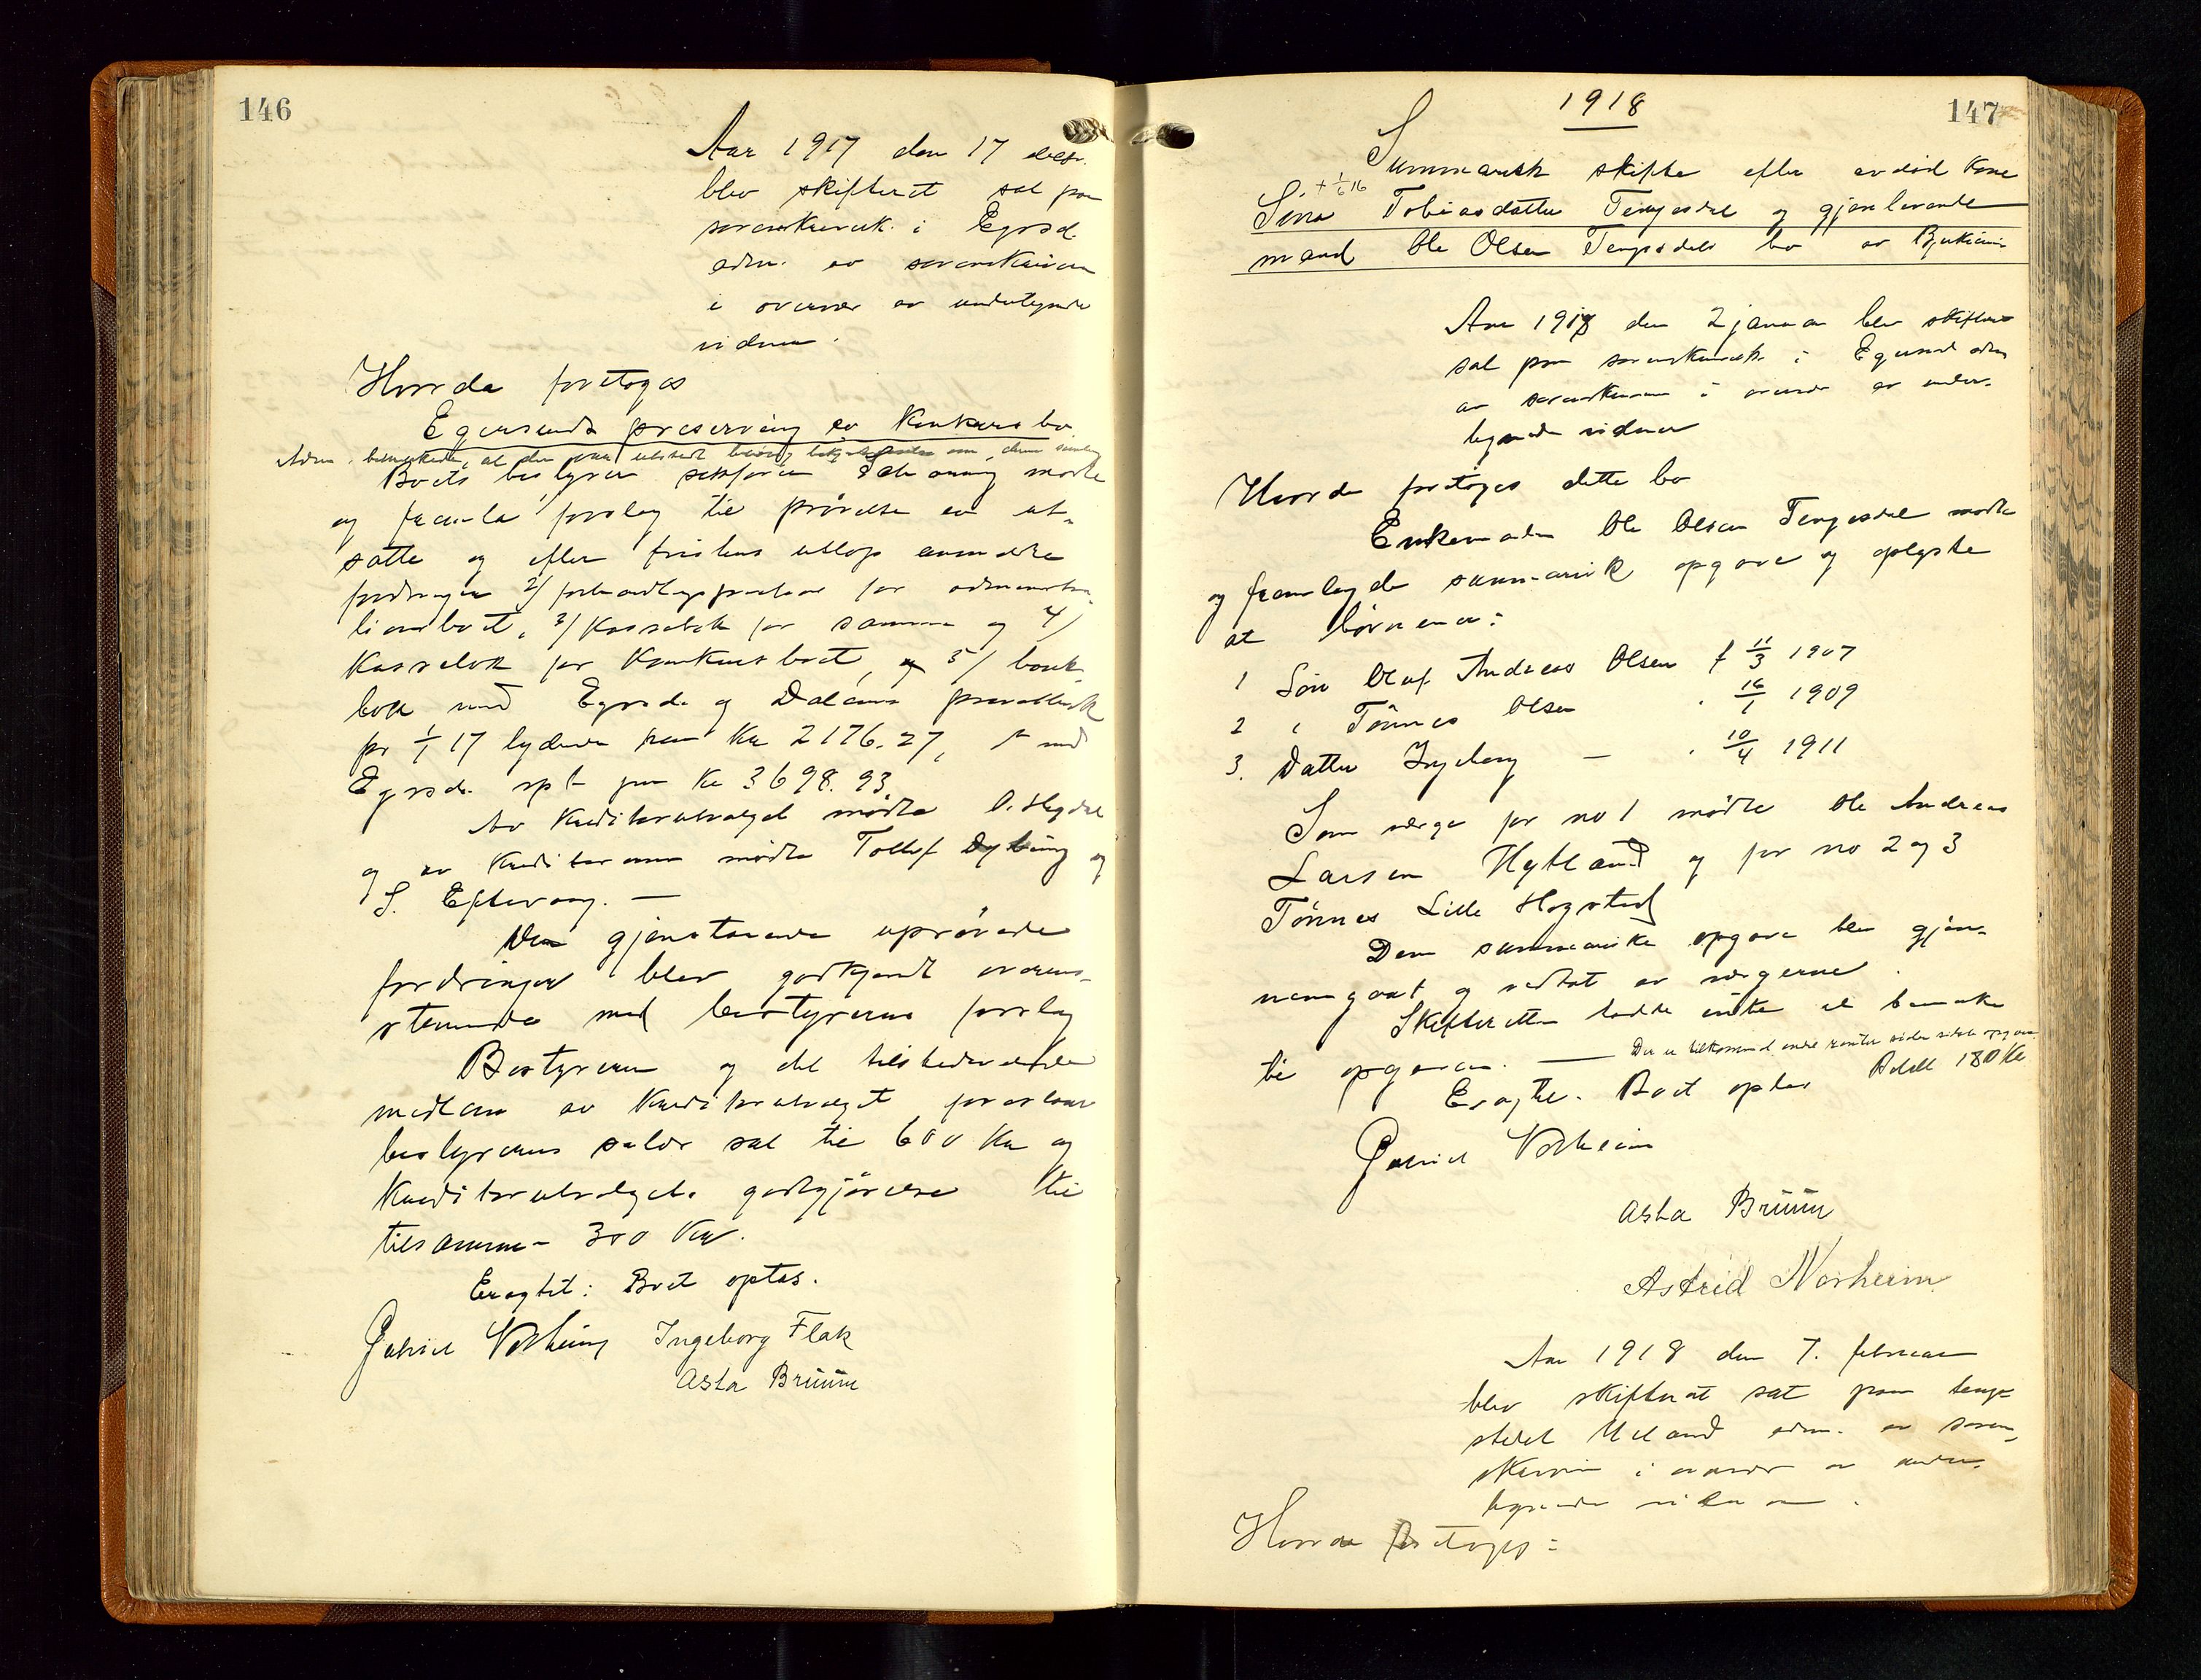 146
Aar 1917 den 17 decbr.
blev skifteret sat paa
sorenskriverk. i Egrsd.
adm. av sorenskriveren
i overvær av undertegnede
vidner.
Hvorda foretoges
Egersunds preserving co Konkursbo
Adm. bemerkede, at der var utstedt lovlig
Boets bestyrer sakfører mødte
og fremla forslag til prøvelse av ut-
satte og efter fristens utløp anmeldte
fordringer 2/ forhandlingsprotokol for administra-
tionsboet, 3/ Kassabok for samme og 4/
Kassabok for Konkursboet, og 5/ bank-
bok med Egrsds. og Dalane privatbank
pr 1/1 17 lydende paa Kr 2176.27, + med
Egrsds. spb paa Kr 3698.93
Av Kreditorutvalget mødte
og av Kreditorerne mødte Tollef Dybing og
S. Eftevaag. —
De gjenstaaende uprøvede
fordringer blev godkjendt overens-
stemmende med bestyrerens forslag
Bestyreren og det tilstedeværende
medlem av Kreditorutvalget foreslaar
bestyrerens salær sat til 600 Kr og
Kreditorutvalgets godtgjørelse til
tilsammen 300 Kr.
Eragtet: Boet optas.
Gabriel Ingeborg Flak
Asta Bruun
147
1918
Summarisk skifte efter avdød Kone
+ 1/6 16
Sina Tobiasdatter Tengesdal og gjenlevende
mand Ole Olsen Tengesdals bo av Bjerkreim
Aar 1918 den 2 januar blev skifteret
sat paa sorenskriverk. i Egersund adm
av sorenskriveren i overvær av under-
tegnede vidner
Hvorda foretoges dette bo
Enkemanden Ole Olsen Tengesdal mødte
og fremlagde summarisk opgave og oplyste
at børnene er:
1 Søn Olaf Andreas Olsen f 11/3 1907
2 " Tønnes Olsen " 16/1 1909
3. Datter Ingeborg — " 10/4 1911
Som verge for no 1 mødte Ole Andreas
Larsen Hytland og for no 2 og 3
Tønnes Lille Hogstad
Den summariske opgave blev gjen-
nemgaat og vedtat av vergerne.
Skifteretten hadde intet at bemerke
til opgaven. — Der er tilkommet endel renter siden sidste opgave
Eragtet. Boet optas Betalt 180 Kr
Gabriel
Asta Bruun
Astrid Norheim
Aar 1918 den 7. februar
blev skifteret sat paa tings-
stedet Ueland adm. av soren-
skriveren i overvær av under-
tegnede vidner.
Hvorda foretoges: